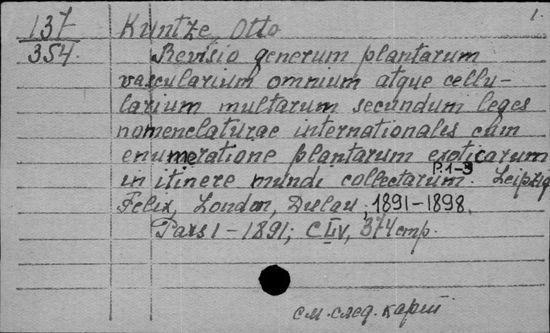 1.
137 Kuntze, Otto
354. Revisio generum plantarum
vascularium omnium atque cellu-
larium multarum secundum leges
nomenclaturae internationales cum
enumeratione plantarum exoticarum
in itinere mundi collectarum. P. 1-3 Leipzig
Felix, London, Dulau, 1891-1898.
Pars 1 - 1891; CLIV, 374 стр.
см. след. карт